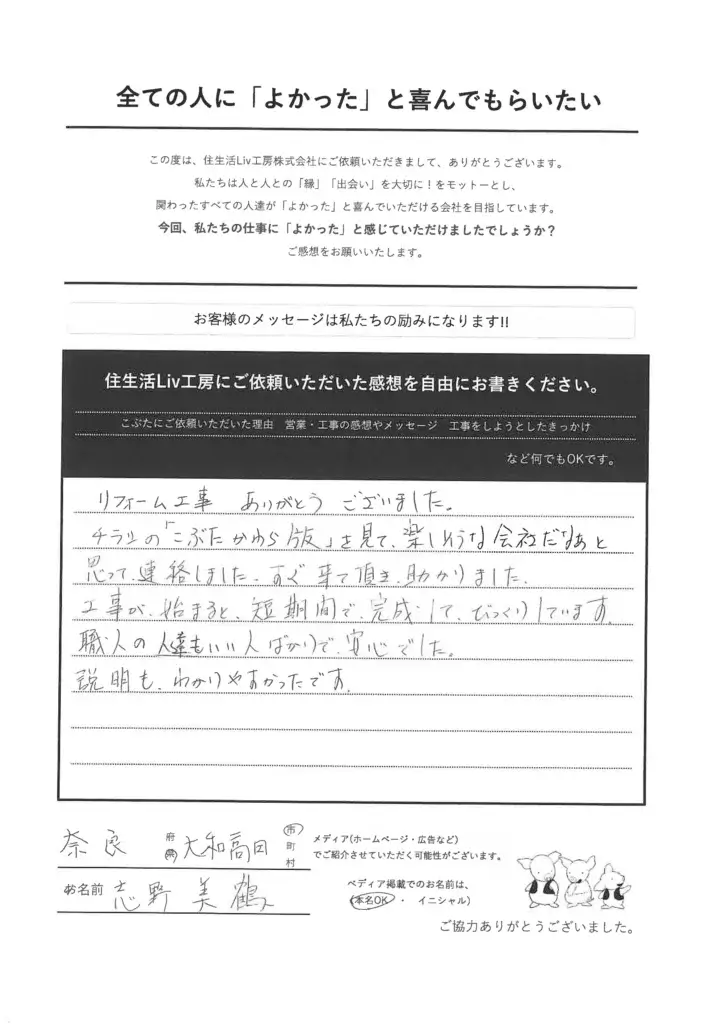 全ての人に「よかった」と喜んでもらいたい
この度は、住生活Liv工房株式会社にご依頼いただきまして、ありがとうございます。
私たちは人と人との「縁」「出会い」を大切に！をモットーとし、
関わったすべての人達が「よかった」と喜んでいただける会社を目指しています。
今回、私たちの仕事に「よかった」と感じていただけましたでしょうか？
ご感想をお願いいたします。
お客様のメッセージは私たちの励みになります!!
住生活Liv工房にご依頼いただいた感想を自由にお書きください。
こぶたにご依頼いただいた理由 営業・工事の感想やメッセージ 工事をしようとしたきっかけ
など何でもOKです。
リフォーム工事 ありがとう ございました。
チラシの「こぶたかわら版」を見て、楽しそうな会社だなぁと
思って、連絡しました。すぐ来て頂き、助かりました。
工事が、始まると、短期間で、完成して、びっくりしています。
職人の人達もいい人ばかりで、安心でした。
説明も、わかりやすかったです。
奈良 府県 大和高田 市町村
お名前 志野 美鶴
メディア(ホームページ・広告など)
でご紹介させていただく可能性がございます。
ペディア掲載でのお名前は、
(本名OK ・ イニシャル)
ご協力ありがとうございました。